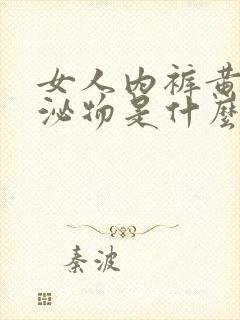 女人内裤黄
泌物是什麼
秦波